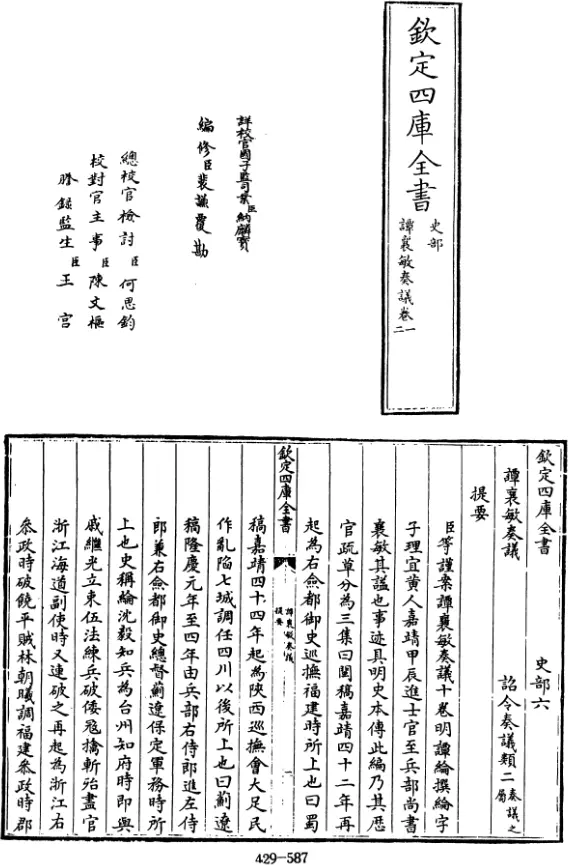 欽定四庫全書
史部
譚襄敏奏議卷一二
詳校官國子監司業臣納麟寶
編修臣裴謙覆勘
總校官檢討臣何思鈞
校對官主事臣陳文樞
謄錄監生臣王宮
欽定四庫全書
史部六
譚襄敏奏議
詔令奏議類二奏議之屬
提要
臣等謹案譚襄敏奏議十卷明譚綸撰綸字
子理宜黃人嘉靖甲辰進士官至兵部尚書
襄敏其諡也事迹具明史本傳此編乃其歴
官疏草分為三集曰閩稿嘉靖四十二年再
起為右僉都御史巡撫福建時所上也曰蜀
欽定四庫全書
譚襄敏奏議
提要
稿嘉靖四十四年起為陝西巡撫會大足民
作亂陷七城調任四川以後所上也曰薊遼
稿隆慶元年至四年由兵部右侍郎進左侍
郎兼右僉都御史總督薊遼保定軍務時所
上也史稱綸沈毅知兵為台州知府時即與
戚繼光立束伍法練兵破倭冦擒斬殆盡官
浙江海道副使時又連破之再起為浙江右
叅政時破饒平賊林朝曦調福建叅政時郡
429-587